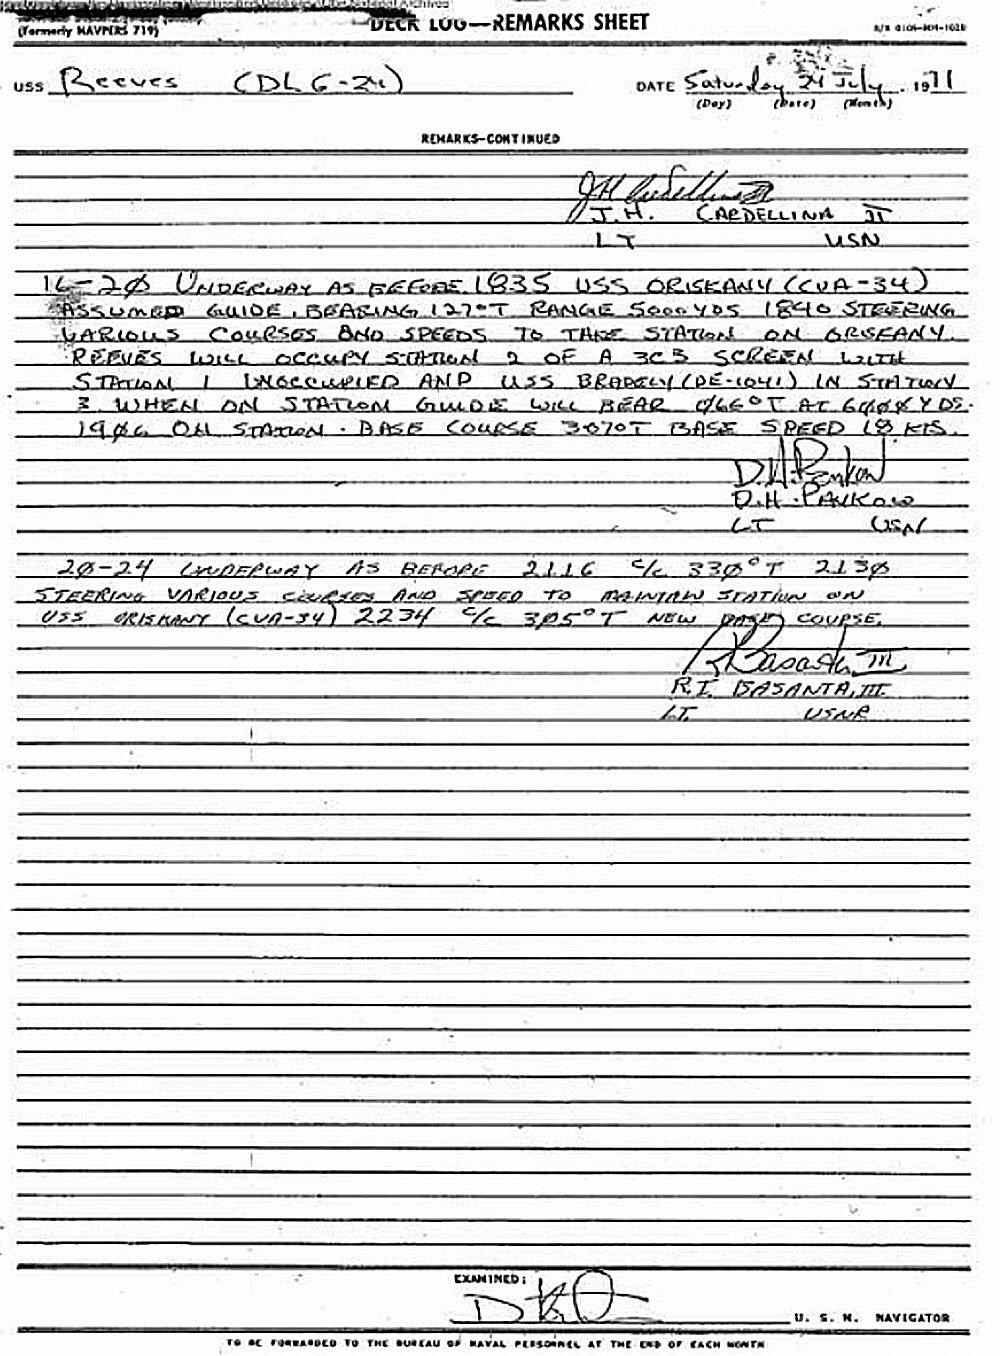 (Formerly NAVPERS 719)
DECK LOG—REMARKS SHEET
USS Reeves (DLG-24)
DATE Saturday 24 July, 1971
(Day) (Date) (Month)
REMARKS—CONTINUED
J.H. CARDELLINA II
LT USN
16-20 UNDERWAY AS BEFORE. 1835 USS ORISKANY (CVA-34)
ASSUMED GUIDE, BEARING 127°T RANGE 5000 YDS 1840 STEERING
VARIOUS COURSES AND SPEEDS TO TAKE STATION ON ORISKANY.
REEVES WILL OCCUPY STATION 2 OF A 3CB SCREEN WITH
STATION 1 UNOCCUPIED AND USS BRADELY (DE-1041) IN STATION
3. WHEN ON STATION GUIDE WILL BEAR 066°T AT 6000 YDS.
1906 ON STATION. BASE COURSE 307°T BASE SPEED 18 KTS.
D.H. Pankow
D.H. PANKOW
LT USN
20-24 UNDERWAY AS BEFORE 2116 C/C 330°T 2130
STEERING VARIOUS COURSES AND SPEED TO MAINTAIN STATION ON
USS ORISKANY (CVA-34) 2234 C/C 305°T NEW BASE COURSE.
R Basanta III
R.I. BASANTA, III
LT. USNR
EXAMINED:
U. S. N. NAVIGATOR
TO BE FORWARDED TO THE BUREAU OF NAVAL PERSONNEL AT THE END OF EACH MONTH